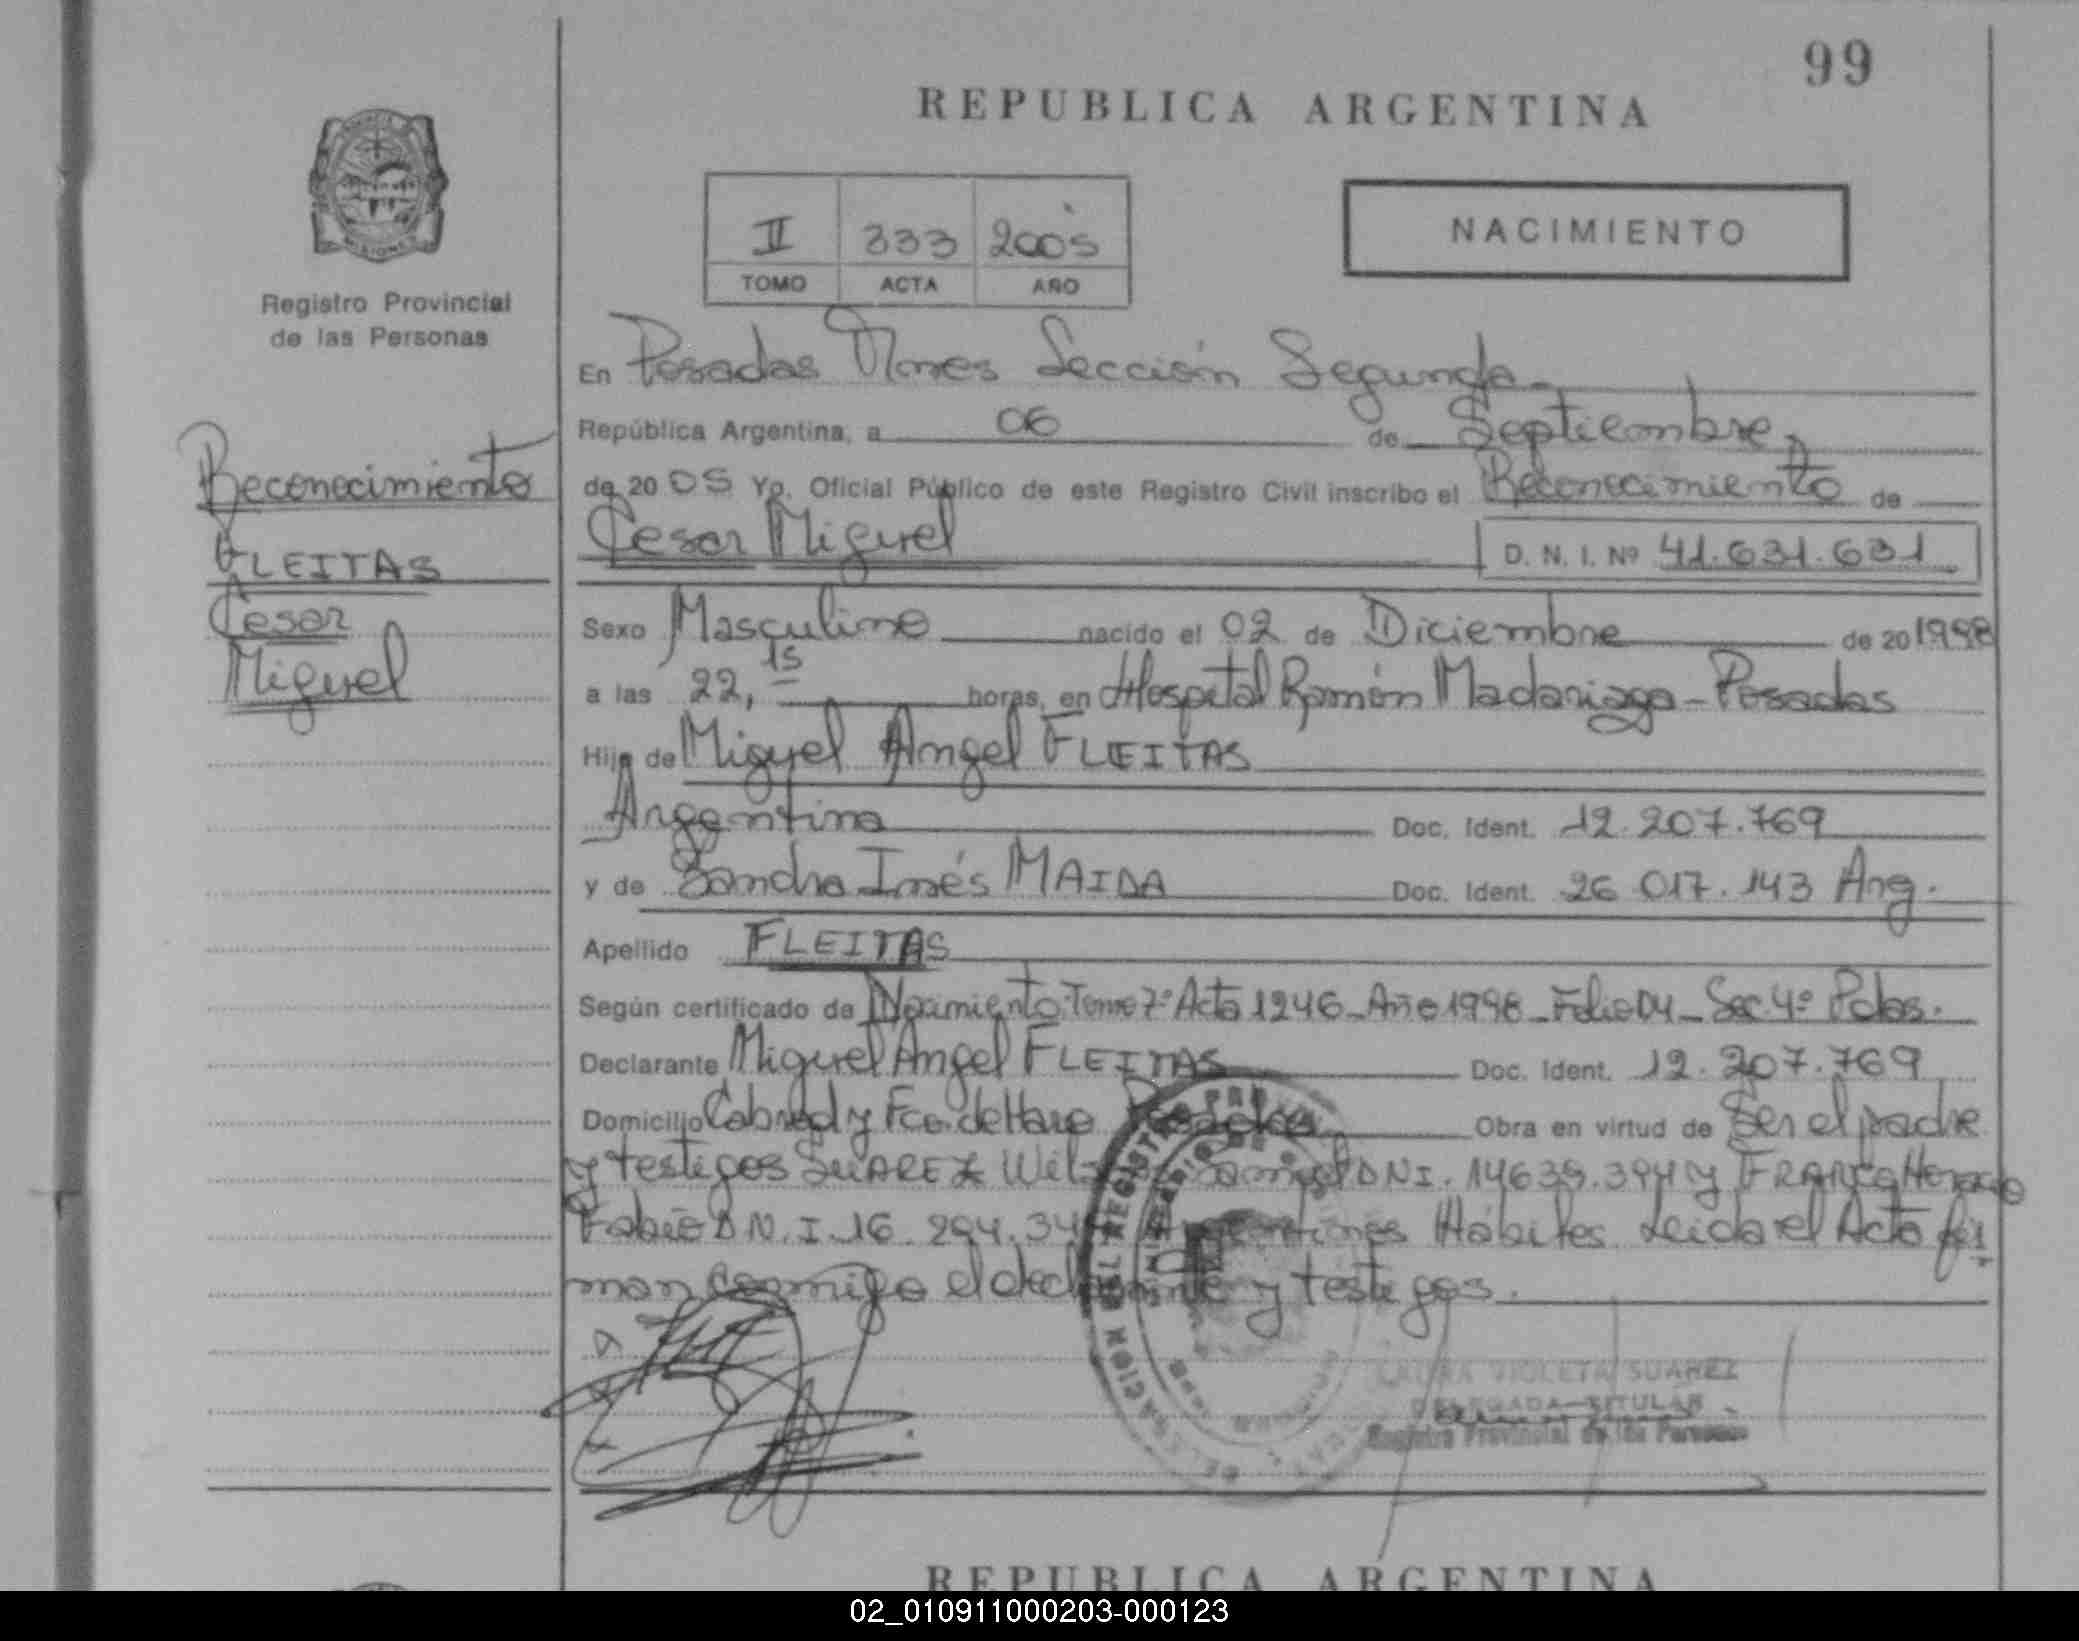 99
REPUBLICA ARGENTINA
NACIMIENTO
II 333 2005
TOMO ACTA AÑO
MISIONES
Registro Provincial
de las Personas
Reconocimiento
FLEITAS
Cesar
Miguel
En Posadas Mnes Sección Segunda
República Argentina, a 06 de Septiembre
de 20 05 Yo, Oficial Público de este Registro Civil inscribo el Reconocimiento de
Cesar Miguel D. N. I. Nº 41.631.631
Sexo Masculino nacido el 02 de Diciembre de 20 1998
a las 22,15 horas, en Hospital Ramón Madariaga - Posadas
Hijo de Miguel Angel FLEITAS
Argentina Doc. Ident. 12.207.769
y de Sandra Inés MAIDA Doc. Ident. 26 017.143 Arg.
Apellido FLEITAS
Según certificado de Nacimiento Tomo 7º Acta 1246 - Año 1998 - Folio 04 - Sec. 4º Pdas.
Declarante Miguel Angel FLEITAS Doc. Ident. 12.207.769
Domicilio Cabred y Fco. de Haro Posadas Obra en virtud de Ser el padre
y testigos SUAREZ DNI. 14639.394 y FRANCO Horacio
Fabio D.N.I. 16.294.34 Argentinos Hábiles Leida el Acta fir
man conmigo el declarante y testigos.
LAURA VIOLETA SUAREZ
DELEGADA TITULAR
Registro Provincial de las Personas
REPUBLICA ARGENTINA
02_010911000203-000123